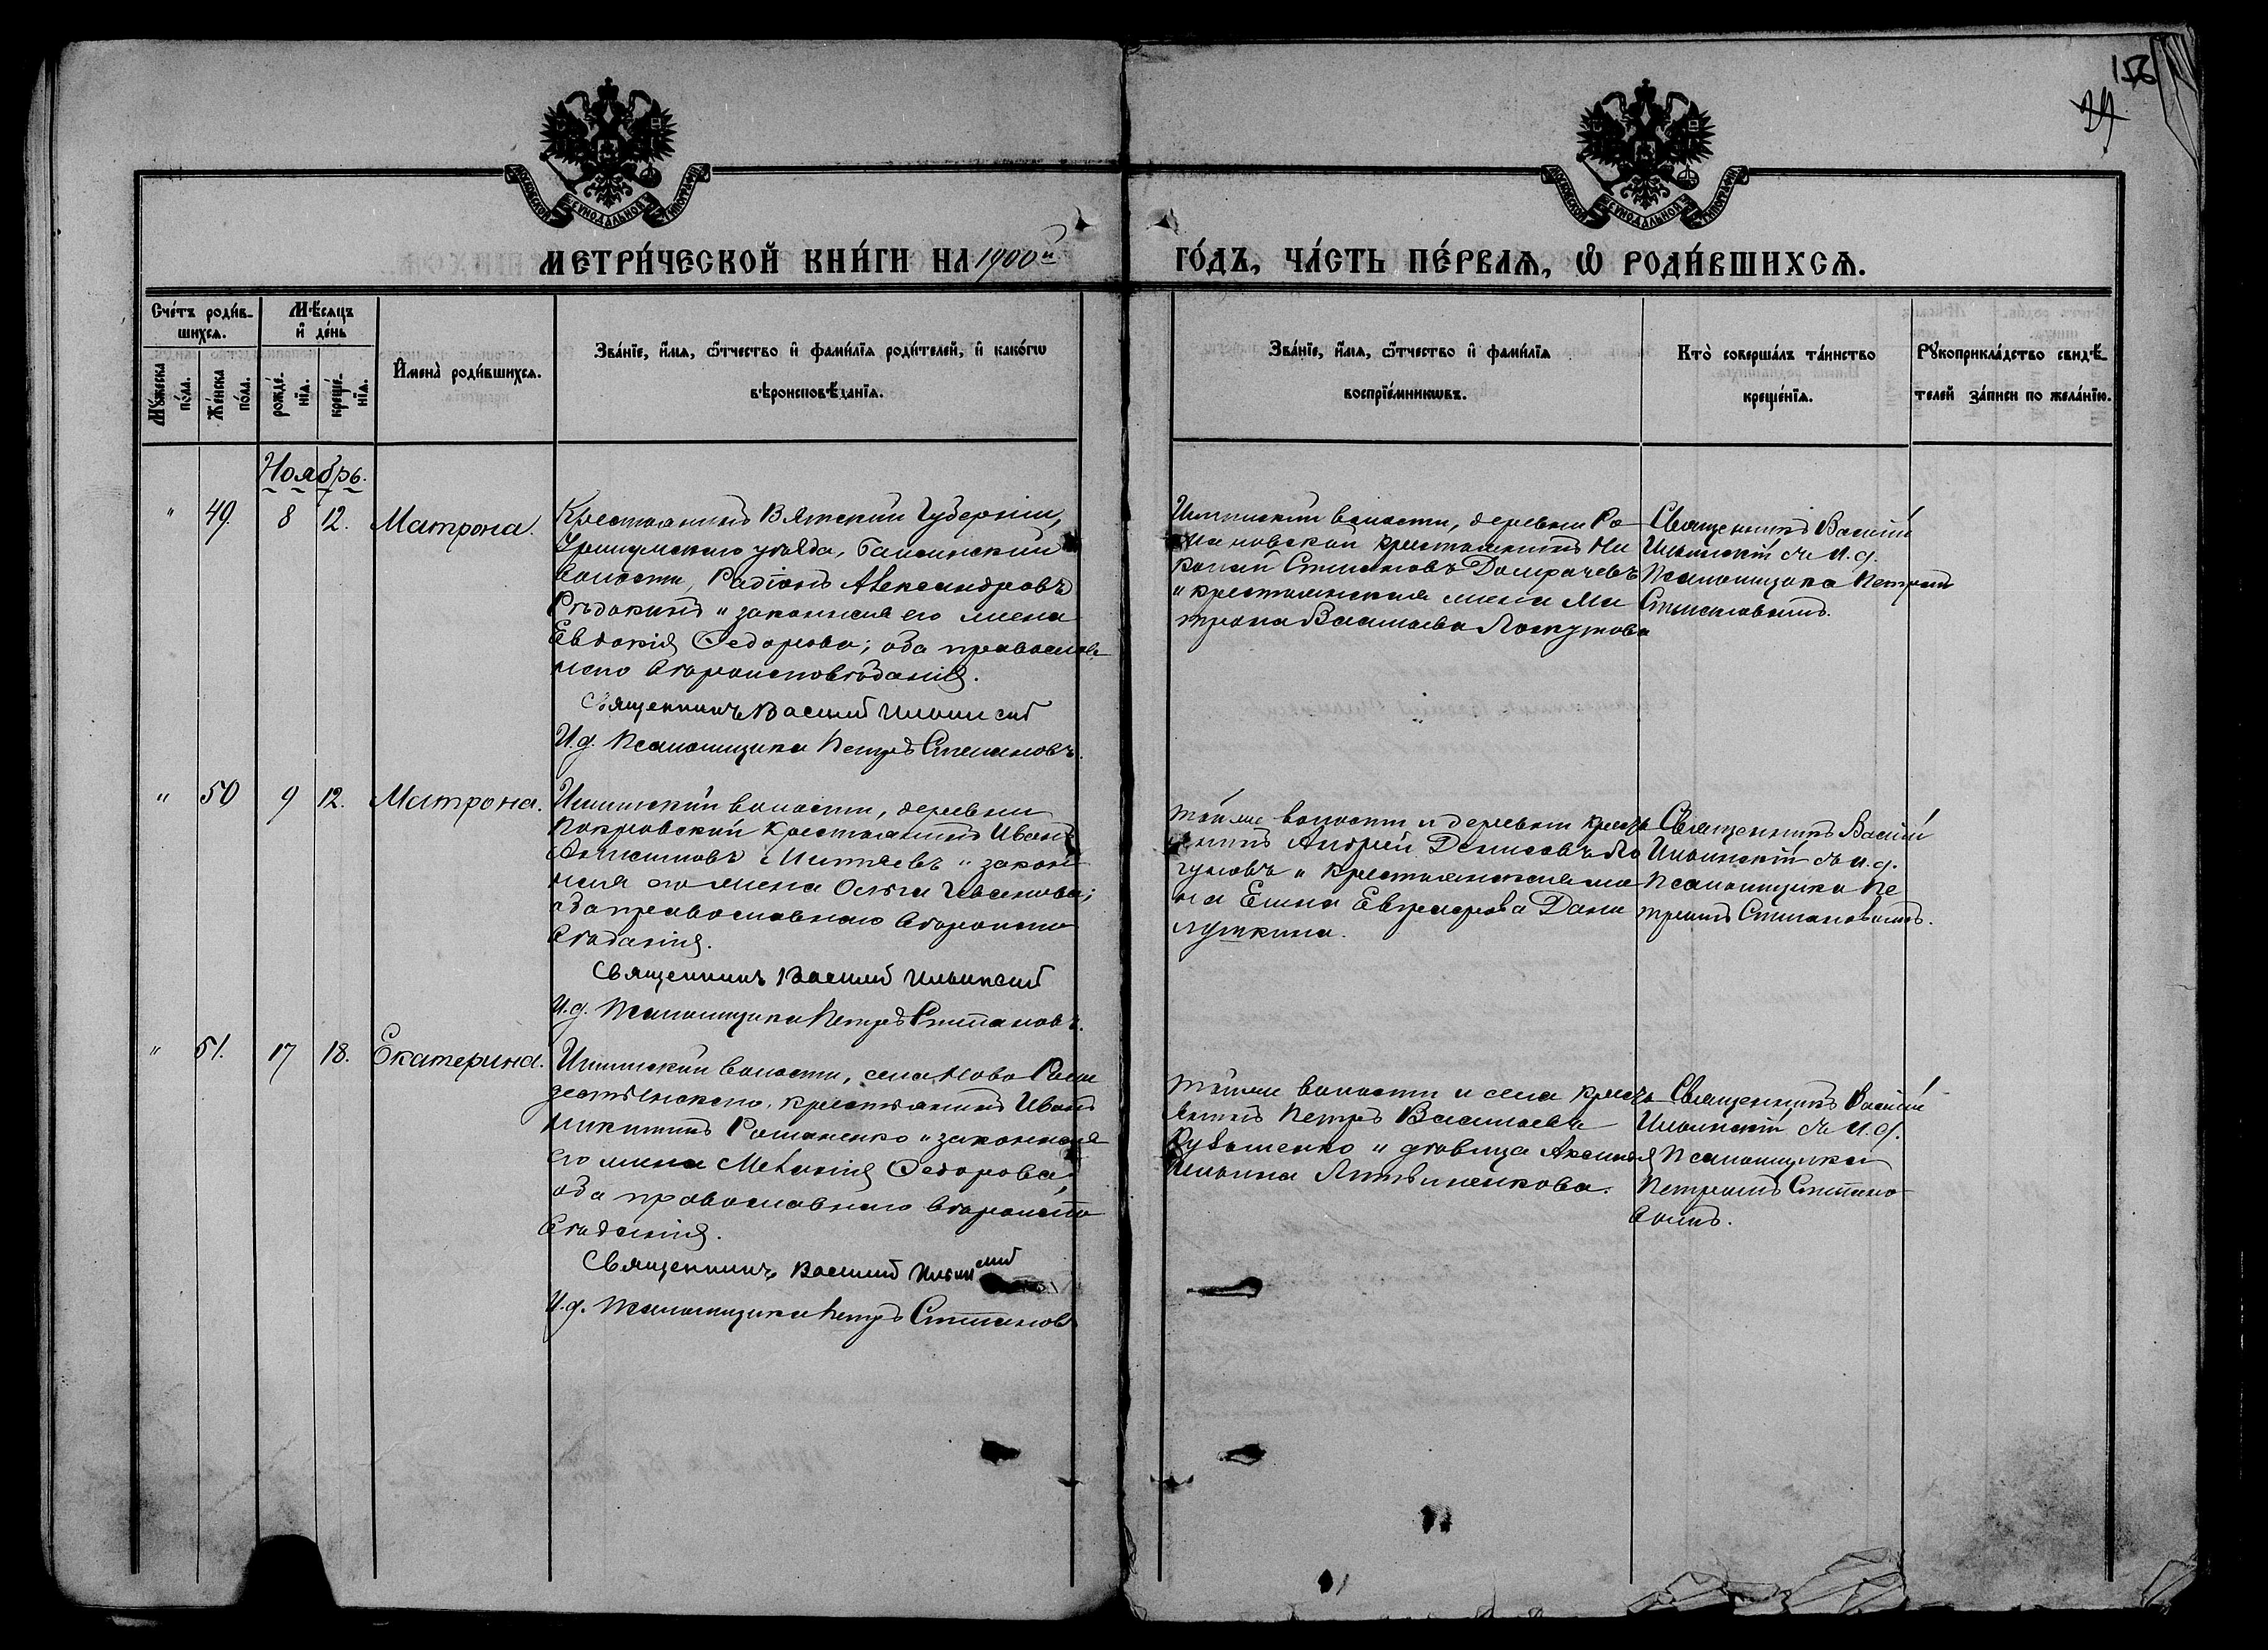 156
МОСКОВСКОЙ СУНОДАЛЬНОЙ ТИПОГРАФІИ
МОСКОВСКОЙ СУНОДАЛЬНОЙ ТИПОГРАФІИ
МЕТРИ́ЧЕСКОЙ КНИ́ГИ НА 1900й
ГО́ДЪ, ЧА́СТЬ ПЕ́РВАѦ, Ѽ РОДИ́ВШИХСѦ.
Сче́тъ роди́в-
шихсѧ.
Мѣ́сѧцъ
и҆ де́нь
Му́жеска
по́ла.
Же́нска
по́ла.
рожде́-
нїѧ.
креще́-
нїѧ.
И҆мена̀ роди́вшихсѧ.
Зва́нїе, и҆́мѧ, ѻ҆́тчество и҆ фами́лїѧ роди́телей, и҆ како́гѡ
вѣроисповѣ́данїѧ.
Зва́нїе, и҆́мѧ, ѻ҆́тчество и҆ фами́лїѧ
воспрїе́мникѡвъ.
Кто̀ соверша́лъ та́инство
креще́нїѧ.
Рꙋкоприкла́дство свидѣ́-
телей за́писи по жела́нїю.
Ноябрь.
" 49. 8 12. Матрона.
Крестьянинъ Вятской Губерніи,
Уржумскаго уѣзда,
волости, Радіонъ Александровъ
Рѣдокинъ и законная его жена
Евдокія Ѳедорова; оба православ-
наго вѣроисповѣданія.
Священникъ Василій Ильинскій
И.д. Псаломщика Петръ Степановъ.
волости, деревни Ро-
мановской крестьянинъ Ни
колай Степановъ Домрачевъ
и крестьянская жена Ма
трона Васильева Лоскутова
Священникъ Василій
Ильинскій съ и.д.
Псаломщика Петромъ
Степановымъ.
" 50 9 12. Матрона.
волости, деревни
Покровской крестьянинъ Иванъ
и закон
ная его жена Ольга Иванова;
оба православнаго вѣроиспо
вѣданія.
Священникъ Василій Ильинскій
И.д. Псаломщика Петръ Степановъ.
той же волости и деревни кресть
янинъ Андрей Денисовъ Ло
гуновъ и крестьянская же
на Елена Евграфова Дани
лушкина.
Священникъ Василій
Ильинскій съ и.д.
Псаломщика Пе
тромъ Степановымъ.
" 51. 17 18. Екатерина.
волости, села Ново Рож
дественскаго, крестьянинъ Иванъ
Никитинъ Романенко и законная
его жена Меланія Ѳедорова,
оба православнаго вѣроиспо
вѣданія.
Священникъ Василій Ильинскій
И.д. Псаломщика Петръ Степановъ
той же волости и села кресть
янинъ Петръ Васильевъ
и дѣвица Аксинья
Ильина Литвиненкова.
Священникъ Василій
Ильинскій съ и.д.
Псаломщика
Петромъ Степано
вымъ.